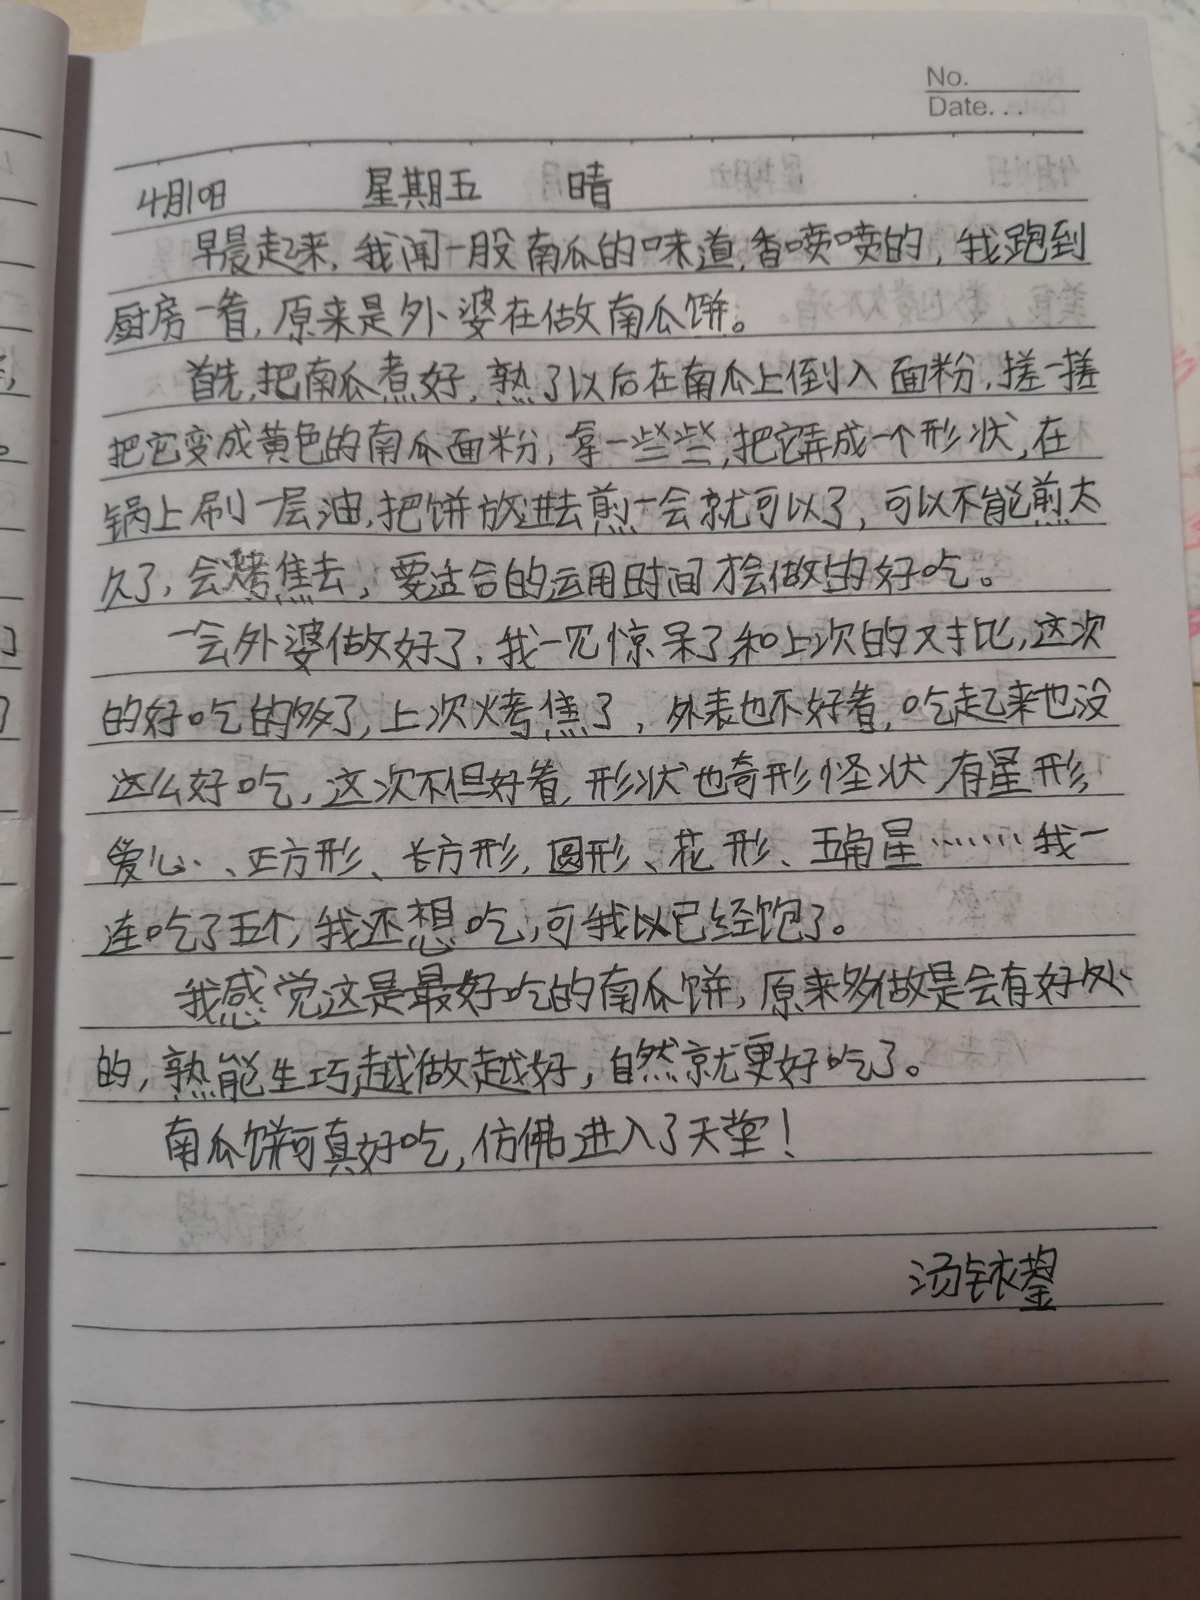 No.
Date...
4月10日 星期五 晴
早晨起来,我闻一股南瓜的味道,香喷喷的,我跑到
厨房一看,原来是外婆在做南瓜饼。
首先,把南瓜煮好,熟了以后在南瓜上倒入面粉,搓一搓
把它变成黄色的南瓜面粉,拿一些些,把它弄成一个形状,在
锅上刷一层油,把饼放进去煎一会就可以了,可以不能煎太
久了,会烤焦去,要适合的运用时间才会做的好吃。
一会外婆做好了,我一见惊呆了,和上次的对比,这次
的好吃的多了,上次烤焦了,外表也不好看,吃起来也没
这么好吃,这次不但好看,形状也奇形怪状 有星形
爱心、正方形、长方形,圆形、花形、五角星……我一
连吃了五个,我还想吃,可我以已经饱了。
我感觉这是最好吃的南瓜饼,原来多做是会有好处
的,熟能生巧,越做越好,自然就更好吃了。
南瓜饼可真好吃,仿佛进入了天堂!
汤铱鋆